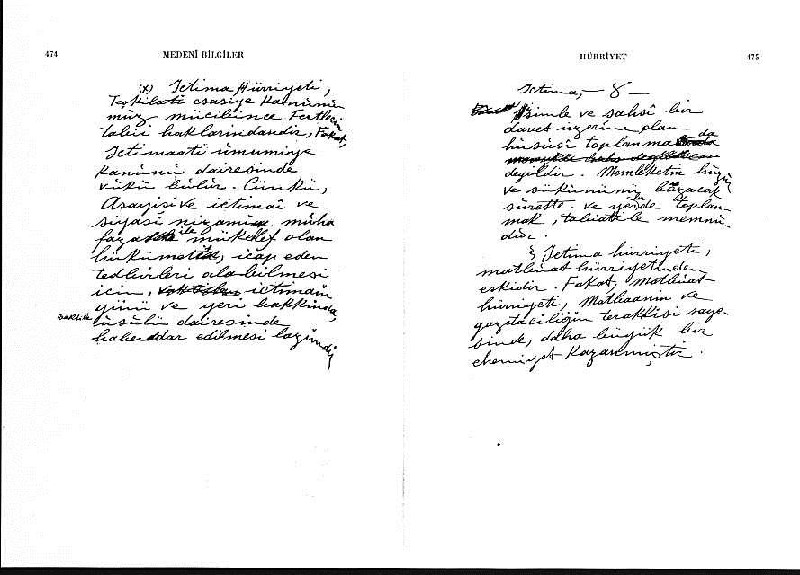 474
MEDENİ BİLGİLER
x) İctima Hürriyeti,
Teşkilatı esasiye Kanununu
mucibince Fertlerin
tabii haklarındandır, Fakat,
İctimaatı umumiye
kanunu dairesinde
bulur. Çünkü,
Asayişi ve ictimai ve
siyasi nizamı muha
faza ile mükellef olan
hükümet, icap eden
tedbirleri alabilmesi
için, ictimaın
günü ve yeri hakkında,
usulü dairesinde
haberdar edilmesi lazımdır
HÜRRİYET
475
İctima, - 8 -
isimle ve şahsi bir
davet üzerine olan
hususi toplanma da
değildir. Memleketin
ve sükununu bozacak
surette ve yerde toplan-
mak, tabiatile memnu-
dur.
§ İctima hürriyeti,
matbuat hürriyetinden
eskidir. Fakat, Matbuat
hürriyeti, Matbaanın ve
gazeteciliğin terakkisi saye-
sinde, daha büyük bir
ehemiyet kazanmıştır.